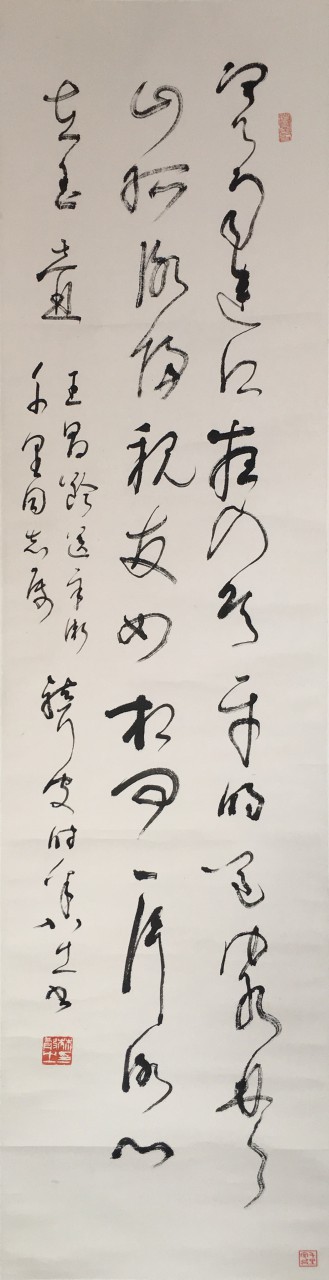 寒雨連江夜入吳平明送客楚
山孤洛陽親友如相問一片冰心
在玉壺
王昌齡送辛漸
千里同志屬
叟時年八十